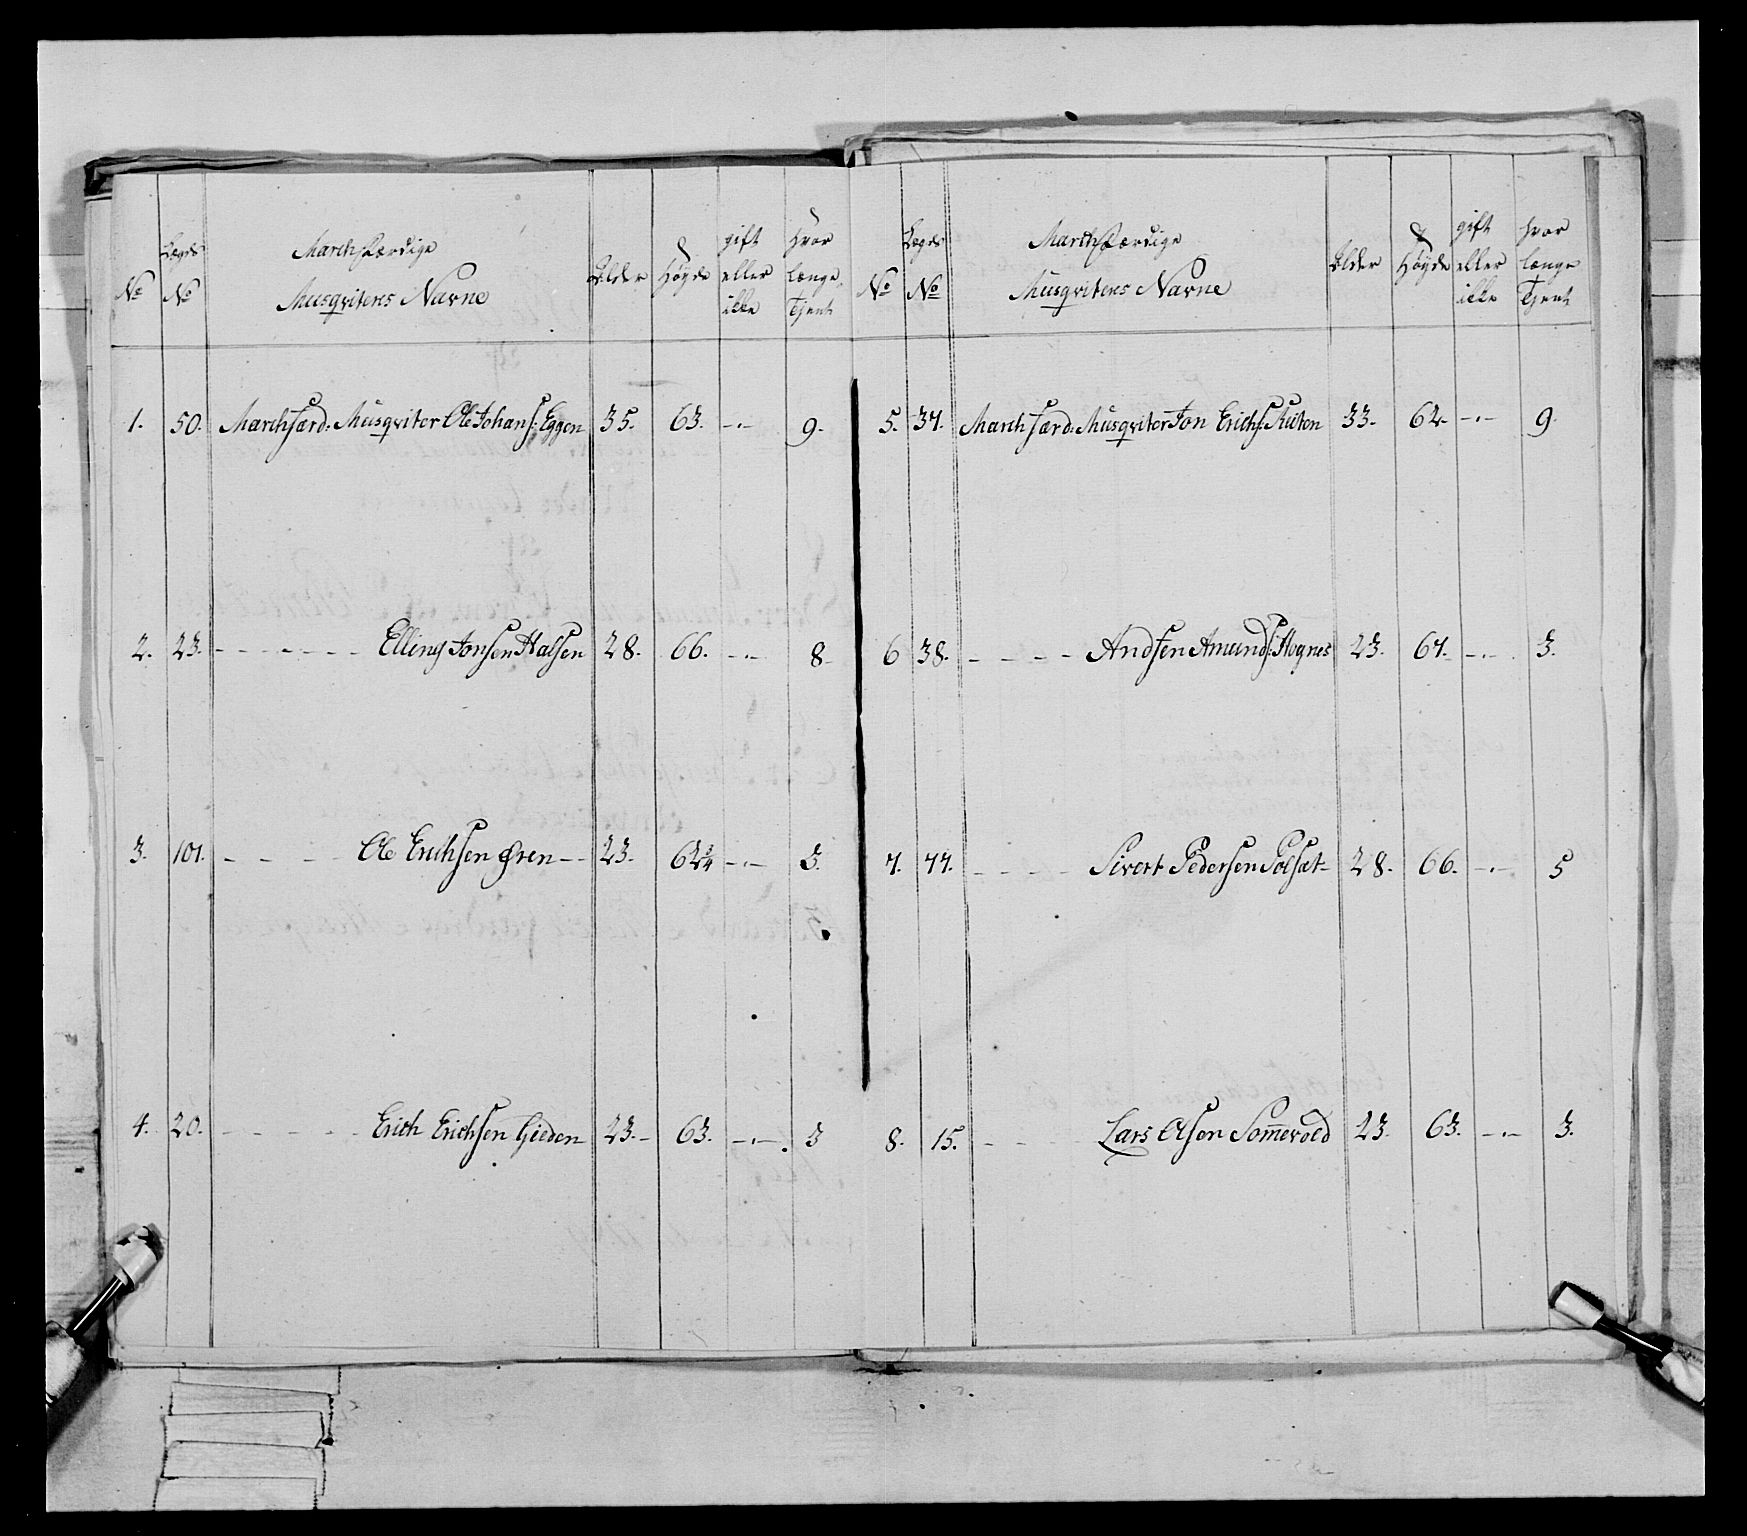 No
Lægds No
Marchfærdige
Musqviteres Navne
Alder
Høyde
gift eller ikke
hvor længe Tjent
1. 50. Marchfærd: Musqviter Ole Johans: Eggen 35. 63. -.- 9.
2. 23. - - - - - - Elling Jonsen Halsen 28. 66. -.- 8
3. 101. - - - - Ole Erichsen Øren -- 23. 62 3/4 -.- 3.
4. 20. - - - - - Erich Erichsen Gieden 23. - 63. -.- 3
No
Lægds No
Marchfærdige
Musqviteres Navne
Alder
Høyde
gift eller ikke
hvor længe Tjent
5. 37. Marchfærd: Musqviter Jon Erichs: Ruten 33. 62 -.- 9.
6 38. - - - - Andsen Amunds: Hognes 23. 67. -.- 3.
7. 77. - - - - Sivert Pedersen Solsæt - 28. 66. -.- 5
8. 15. - - - Lars Olsen Som̅ervold 23. 63. -.- 3.